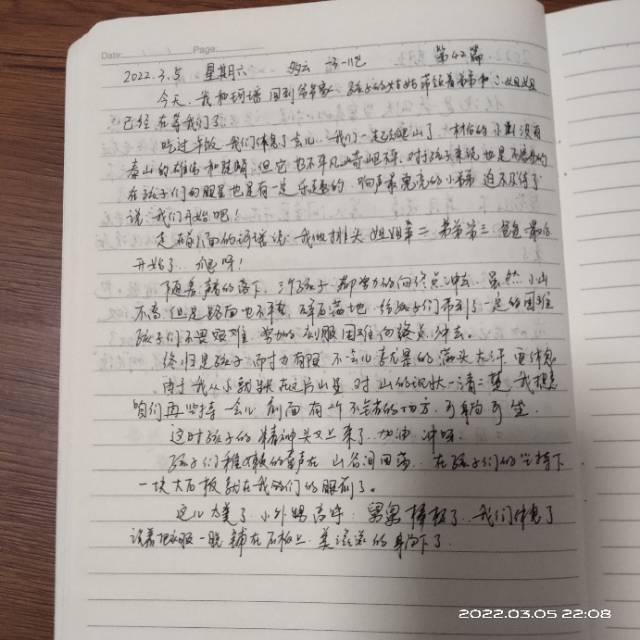 Date: Page:
2022.3.5 星期六 多云 第42篇
今天,我和珂瑶回到爷爷家,孩子的姑姑带
已经在等我们了。
吃过午饭,我们休息了会儿,我们一起去爬山了。村后的小山没有
泰山的雄伟和险峻,但它也不平凡,对孩子来说也是不
在孩子们的眼里也是有一定乐趣的,迫不及待了
说:我们开始吧!
走在前面的珂瑶说:我当排头,姐姐第二,弟弟第三,爸爸最后
开始了,爬呀!
随着声音的落下,三个孩子都努力的向终点冲去,虽然小山
不高,但是路面也不平整,碎石满地,给孩子们带来了一定的困难
孩子们不畏艰难,努力的克服困难向终点冲去。
终归是孩子,耐力有限,不会儿累的满头大汗,要休息
由于我从小就长在这片山里,对山的现状一清二楚,我想
咱们再坚持一会儿,前面有一个不错的地方,可躺可坐。
这时孩子的精神头又上来了,加油,冲呀。
孩子们稚嫩的童声在山谷间回荡,在孩子们的坚持下
一块大石板就在我们的眼前了。
这儿太美了,小外甥高呼:舅舅棒极了,我们休息了
说着把衣服一脱,铺在石板上,美滋滋的躺下了。
2022.03.05 22:08